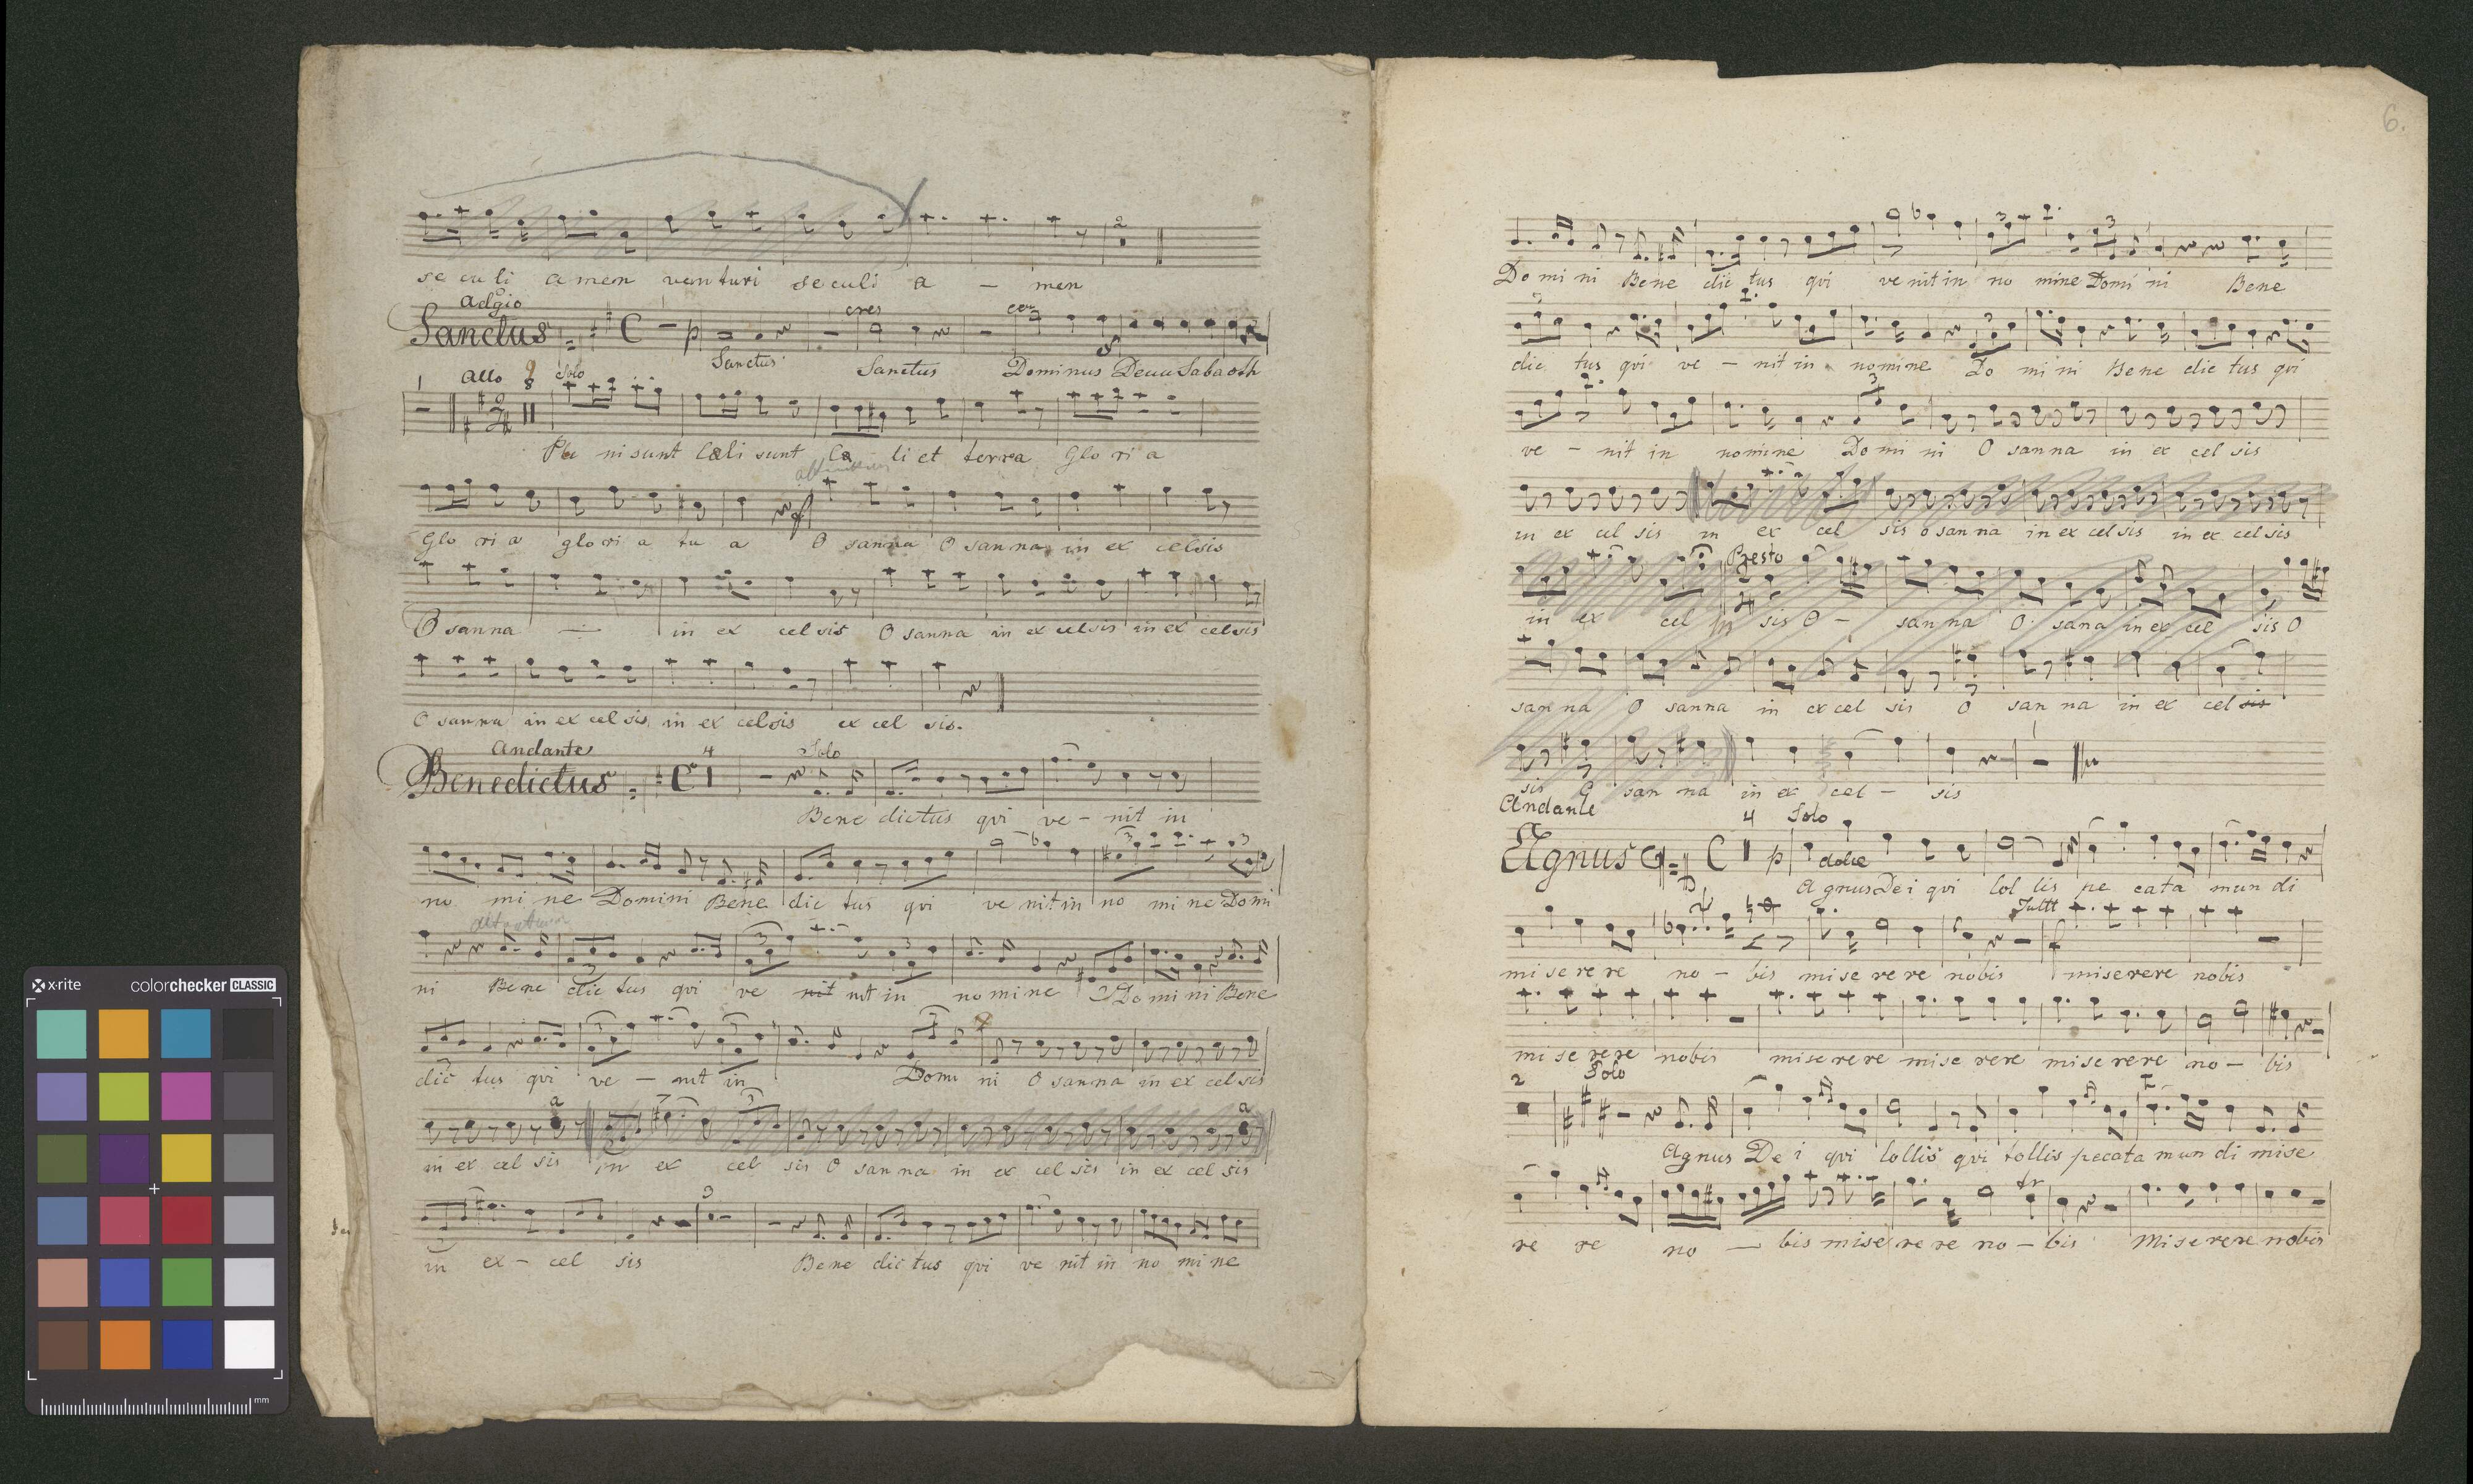 se cu li amen venturi seculi a — men
adgio
Sanctus C p cres cen
Sanctus Sanctus Dominus Deuu Sabaoth
1 Allo Solo
Ple ni sunt Cæli sunt Cæ li et terra Glo ri a
Glo ri a glo ri a tu a O sanna O san na in ex celsis
O sanna — in ex cel sis O sanna in ex celsis in ex celsis
O sanna in ex cel sis in ex celsis ex cel sis.
Andante
Benedictus 4 Solo
Bene dictus qvi ve - nit in
no mi ne Domini Bene dic tus qvi ve nit in no mi ne Domi
ni Bene dic tus qvi ve nit nit in no mi ne Do mi ni Bene
dic tus qvi ve — nit in Domi ni O sanna in ex cel sis
a a
in ex cel sis in ex cel sis O san na in ex cel sis in ex cel sis
in ex - cel sis Bene dic tus qvi ve nit in no mi ne
6.
Do mi ni Bene dic tus qvi ve nit in no mine Domi ni Bene
dic tus qvi ve — nit in nomine Do mi ni Bene dic tus qvi
ve — nit in nomine Do mi ni O sanna in ex cel sis
in ex cel sis in ex cel sis o san na in ex cel sis in ex cel sis
Presto
in ex cel sis O - san na O sana in ex cel sis O
san na O sanna in ex cel sis O san na in ex cel sis
sis O san na in ex cel - sis
Andante
Agnus C 4 p Solo dolce
Agnus Dei qvi tol lis pe cata mun di
Tutti
mi se re re no - bis mi se re re nobis miserere nobis
mi se re re nobis mise re re mi se rere mi se re re no - bis
2 Solo
Agnus De i qvi tollis qvi tollis pecata mun di mise
tr
re re no — bis mise re re no - bis Mi se rere nobis
x-rite colorchecker CLASSIC
mm